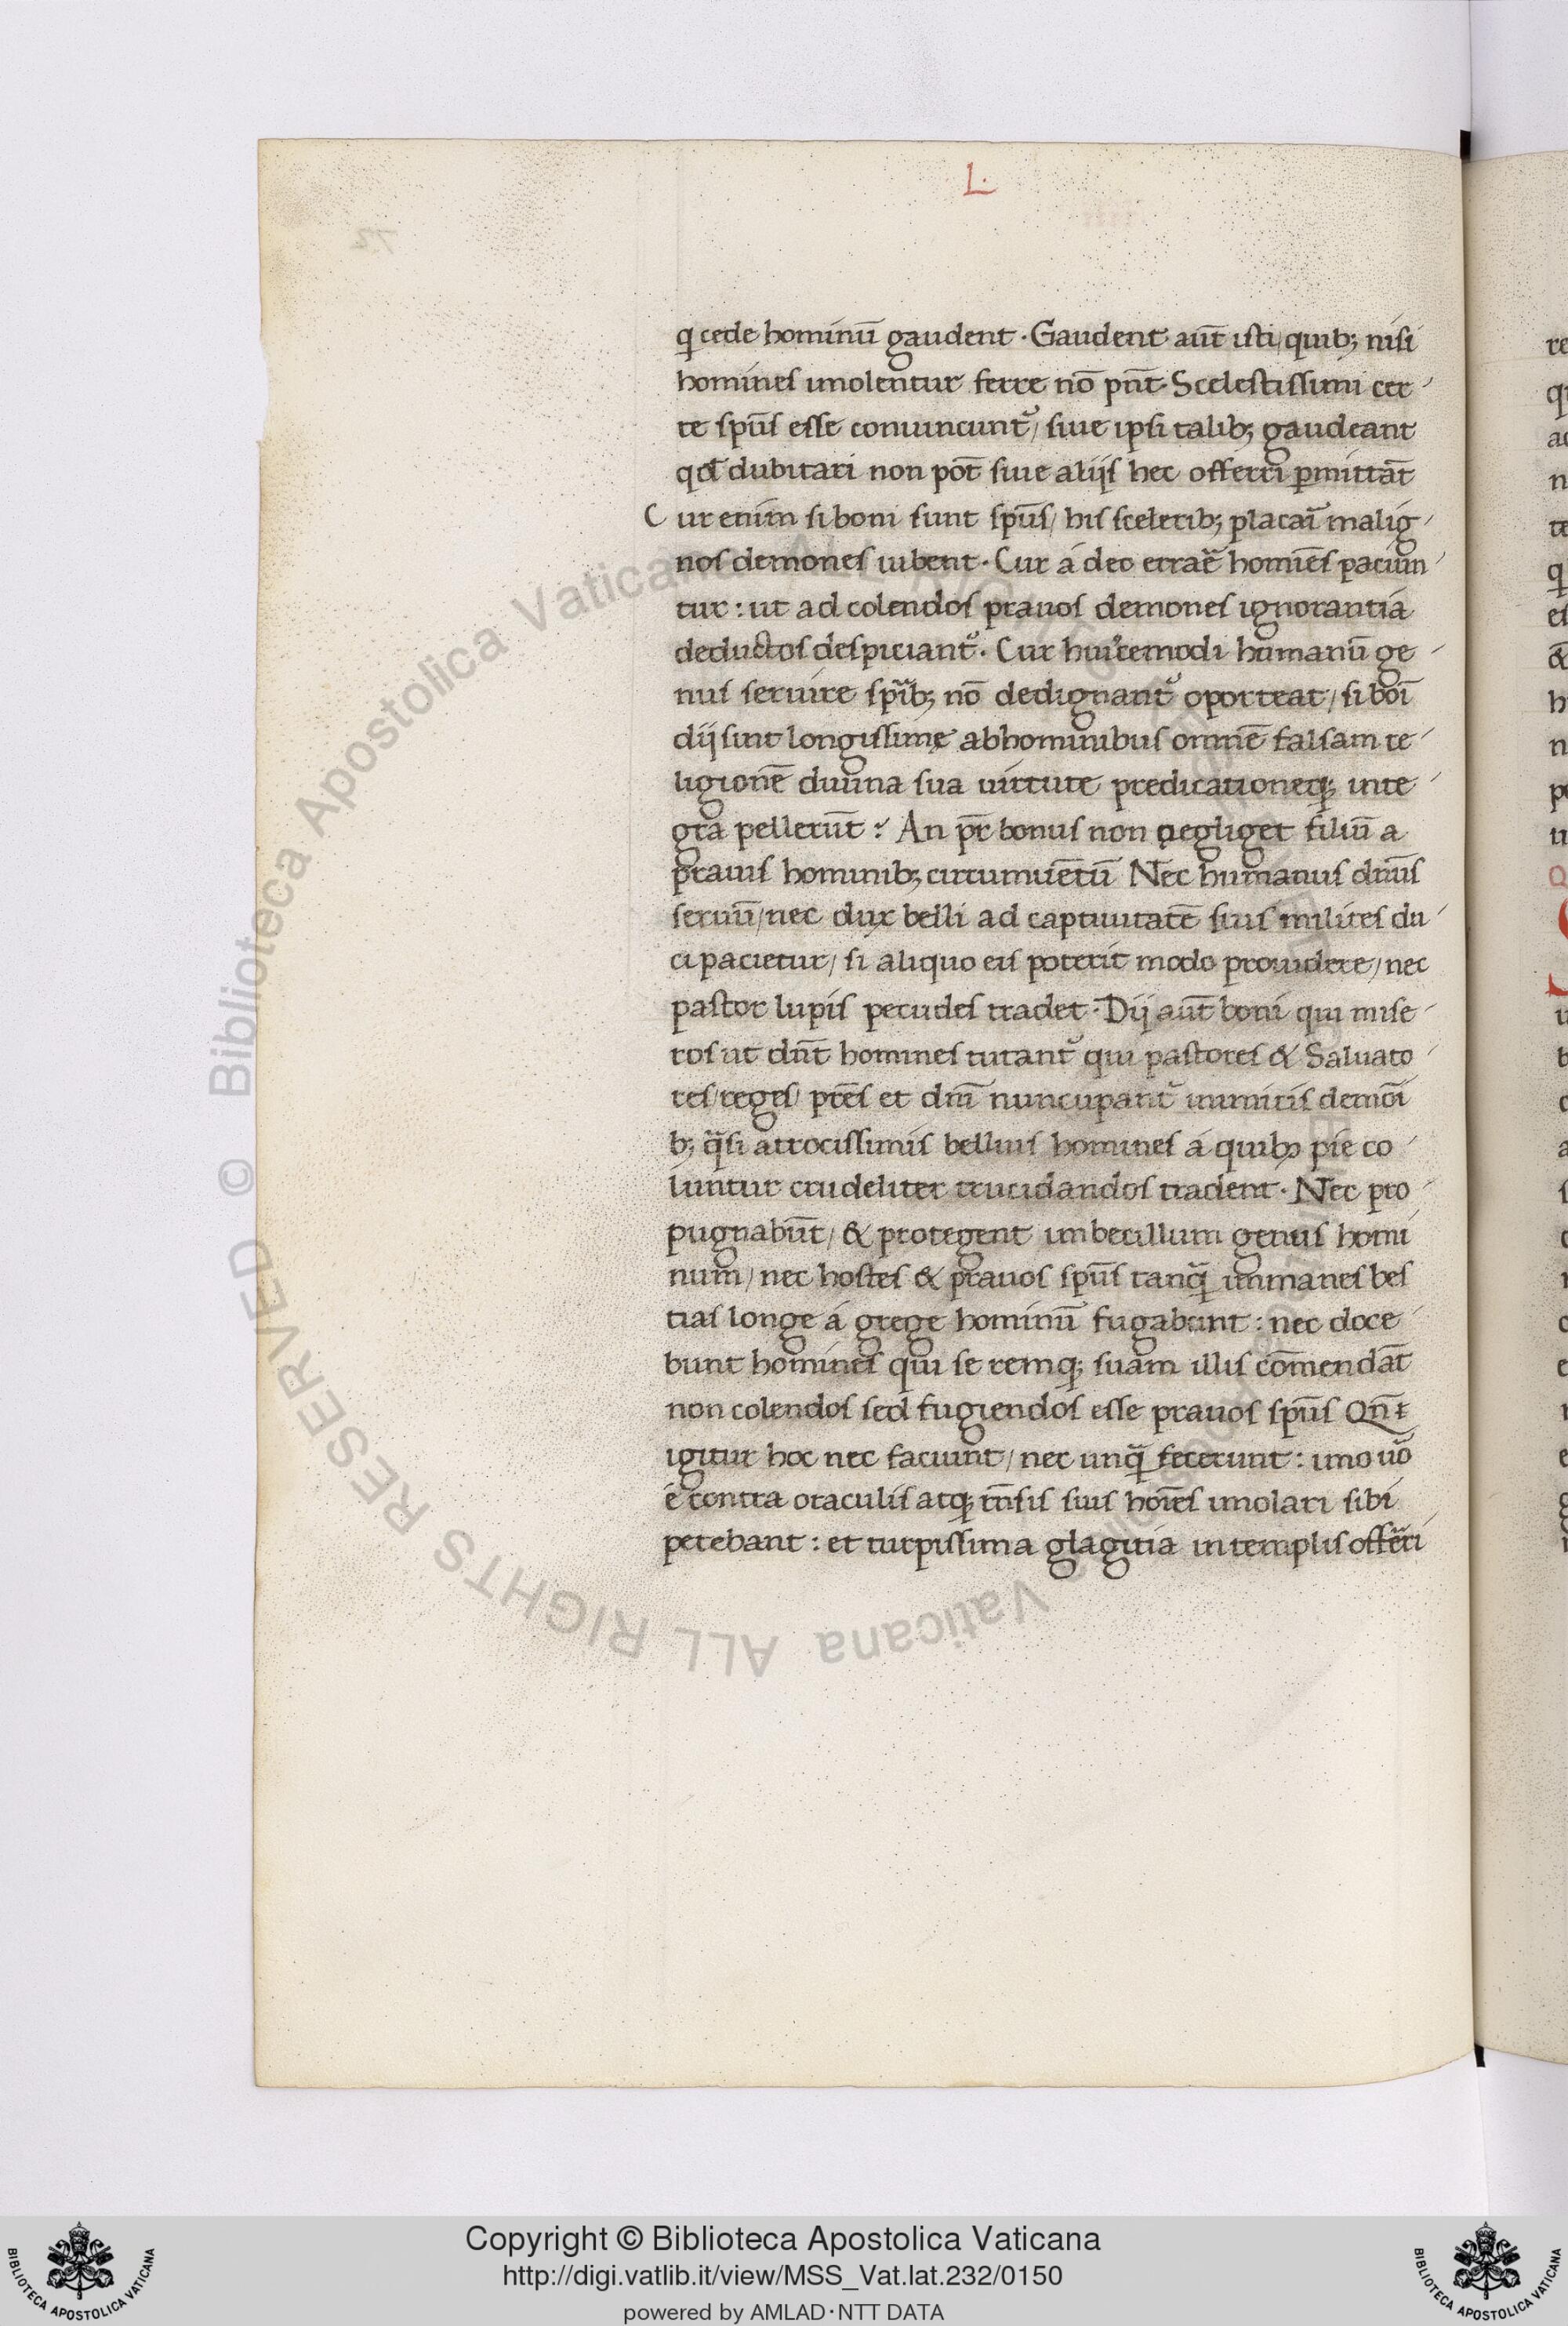 L.
ꝗ cede hominū gaudent · Gaudent aūt isti / quib; nisi
homines imolentur ferre nō pn̄t · Scelestissimi cer
te sp̄us esse conuincunt᷒ / siue ipsi talib; gaudeant
qd̄ dubitari non pōt siue alijs hec offerri ꝑmittāt
Cur enim si boni sunt sp̄us / his sceleribus; placaī malig
nos demones iubent · Cur á deo erraē homiēs paciun
tur : ut ad colendos prauos demones ignorantia
deductos despiciant᷒ · Cur huiꝰcemodi humanū ge
nus seruire sp̄ib; nō dedignant᷒ oporteat / si boī
dij sint longissime ab hominibus omnē falsam re
ligionē diuina sua uirtute predicationeq; inte
gra pellerūt ? An pr̄ bonus non negliget filiū a
prauis hominib; circumuētū Nec humanus dn̄us
seruū / nec dux belli ad captiuitatē suis milites du
ci pacietur / si aliquo eis poterit modo prouidere / nec
pastor lupis pecudes tradet · Dij aūt boni qui mise
ros ut dn̄t homines tutant᷒ qui pastores & Saluato
res / reges / pr̄es et dn̄i nuncupant᷒ inimicis demoī
b; q̄si atrocissimis belluis homines á quibꝰ pie co
luntur crudeliter trucidandos tradent · Nec pro
pugnabūt / & protegent imbecillum genus homi
num / nec hostes & prauos sp̄us tanq̄ immanes bes
tias longe á grege hominū fugabunt : nec doce
bunt homines qui se remq; suam illis cōmendāt
non colendos sed fugiendos esse prauos sp̄us Qn̄t
igitur hoc nec faciunt / nec unq̄ fecerunt : imo uō
é contra oraculis atq; rn̄sis suis hoīes imolari sibi
petebant : et turpissima glagitia in templis offērri
© Biblioteca Apostolica Vaticana ALL RIGHTS RESERVED
Copyright © Biblioteca Apostolica Vaticana
http://digi.vatlib.it/view/MSS_Vat.lat.232/0150
powered by AMLAD·NTT DATA
BIBLIOTECA APOSTOLICA VATICANA
BIBLIOTECA APOSTOLICA VATICANA